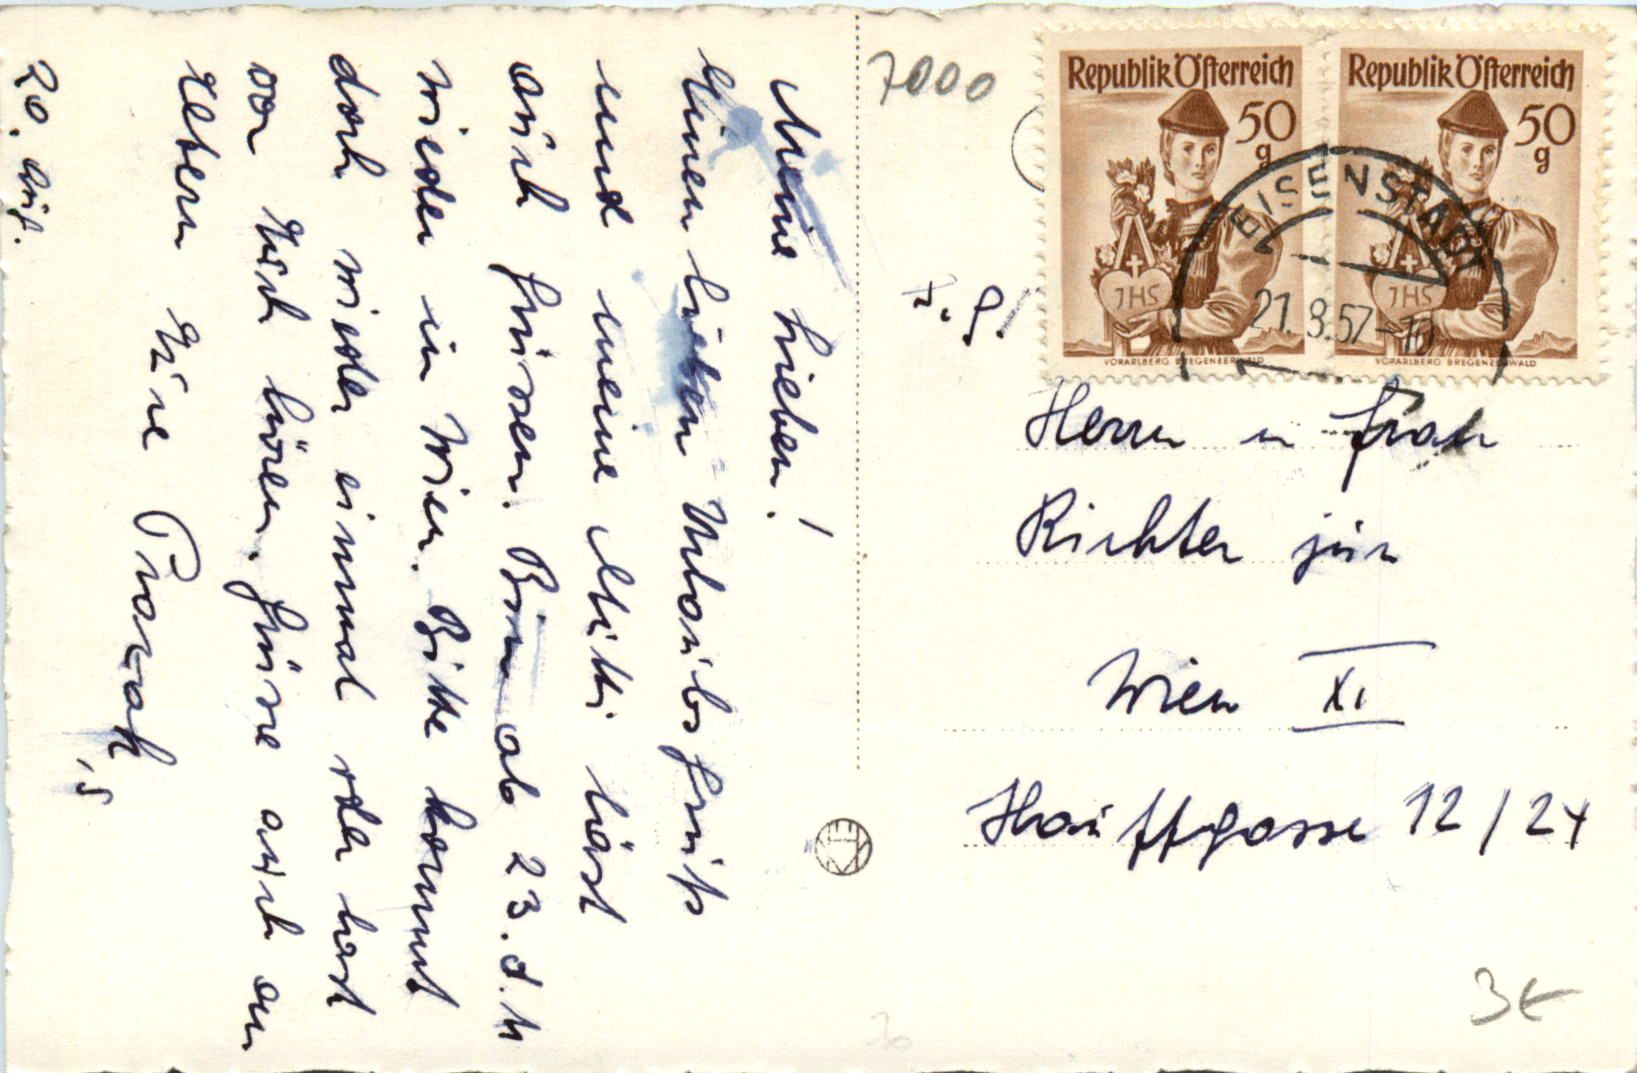 Meine Lieben!
Einen lieben Urlaubsgruß
und meine Mitzi läßt
auch grüssen. Bin ab 23. d. M
wieder in Wien. Bitte kommt
doch wieder einmal oder laßt
von Euch hören. Grüsse auch an
Eltern Eure
20. Aug.
7000
Republik Österreich
50
g
JHS
VORARLBERG BREGENZERWALD
Republik Österreich
50
g
JHS
VORARLBERG BREGENZERWALD
EISENSTADT
21.8.57-10
Herrn u Frau
Richter jun
Wien XI
Hauffgasse 12/24
3€